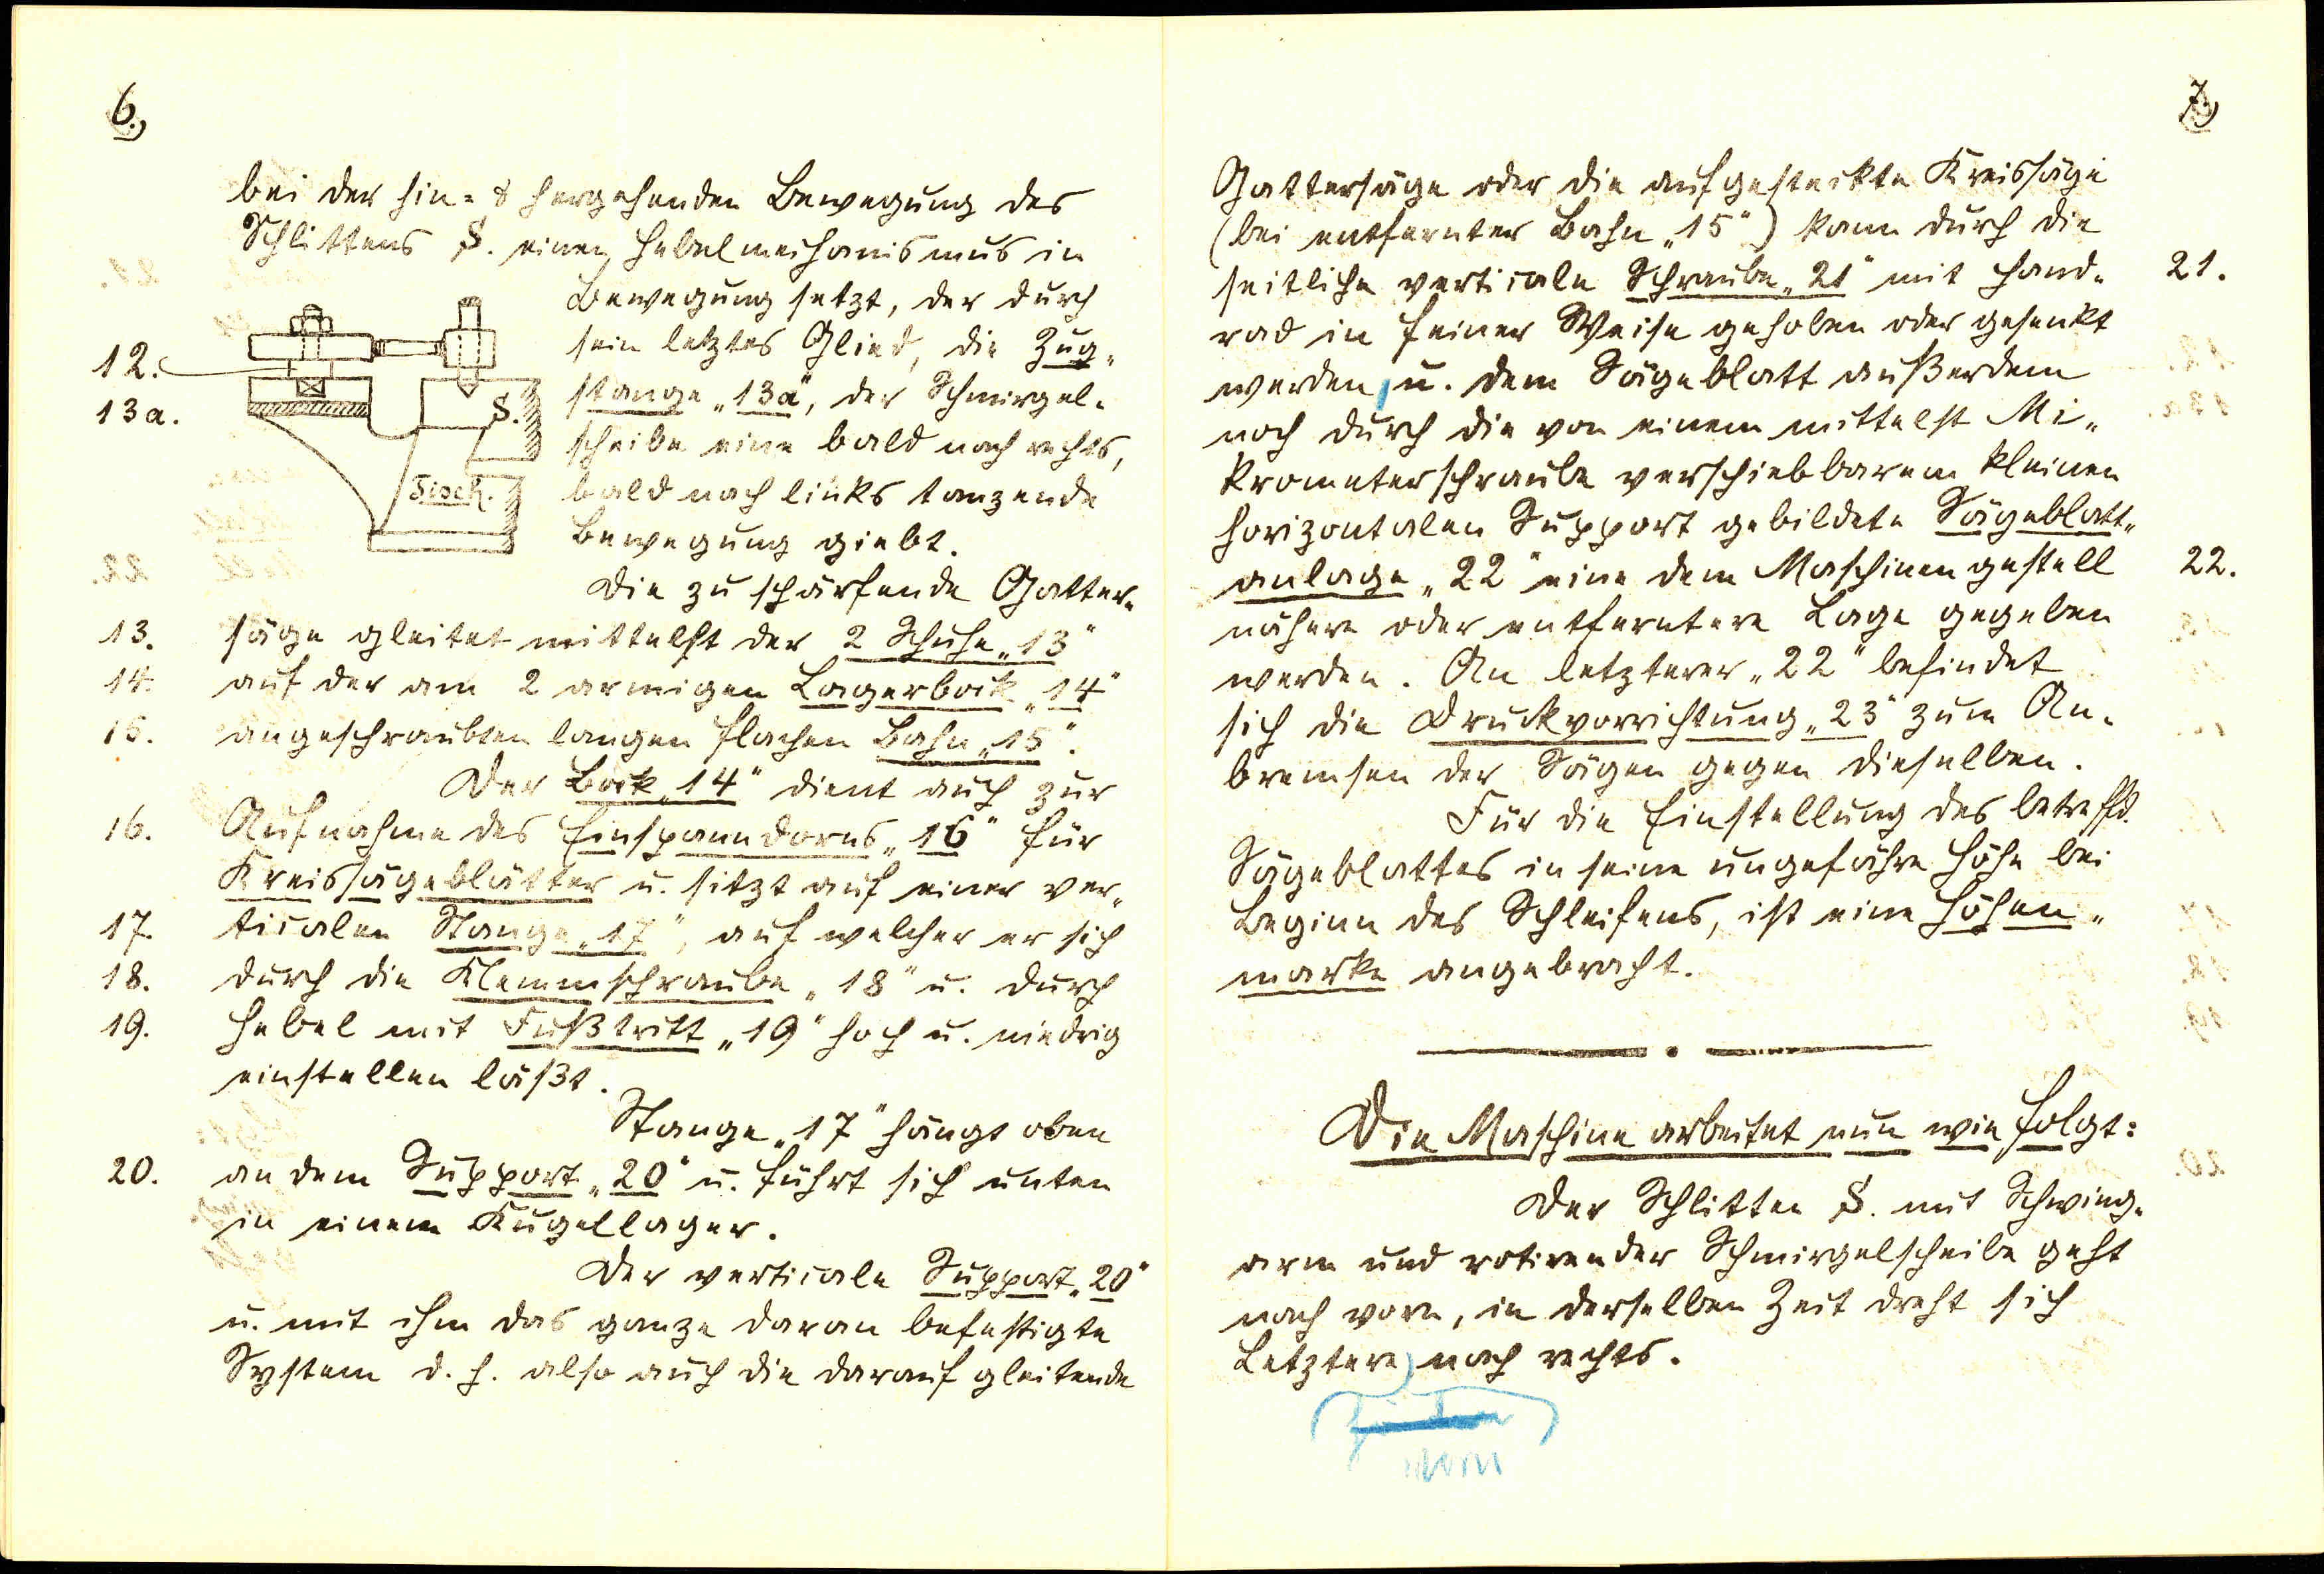 6.)
bei der hin- & hergehenden Bewegung des
Schlittens S. einen Hebelmechanismus in
Bewegung setzt, der durch
sein letztes Glied, die Zug-
12.
stange „13a“, der Schmirgel-
13a.
S.
scheibe eine bald nach rechts,
Tisch.
bald nach links tanzende
Bewegung giebt.
Die zu schärfende Gatter-
13. säge gleitet mittelst der 2 Schuhe „13“
14. auf der am 2 armigen Lagerbock „14“
15. angeschraubten langen flachen Bahn „15“.
Der Bock „14“ dient auch zur
16. Aufnahme des Einspanndorns „16“ für
Kreissägeblätter u. sitzt auf einer ver-
17. ticalen Stange „17“, auf welcher er sich
18. durch die Klemmschraube „18“ u. durch
19. Hebel mit Fußtritt „19“ hoch u. niedrig
einstellen läßt.
Stange „17“ hängt oben
20. an dem Support „20“ u. führt sich unten
in einem Kugellager.
Der verticale Support „20“
u. mit ihm das ganze daran befestigte
System d. h. also auch die darauf gleitende
7.)
Gattersäge oder die aufgesteckte Kreissäge
(bei entfernter Bahn „15“) kann durch die
seitliche verticale Schraube „21“ mit Hand- 21.
rad in feiner Weise gehoben oder gesenkt
werden, u. dem Sägeblatt außerdem
noch durch die von einem mittelst Mi-
krometerschraube verschiebbarem kleinen
horizontalen Support gebildete Sägeblatt-
anlage „22“ eine dem Maschinengestell 22.
nähere oder entferntere Lage gegeben
werden. An letzterer „22“ befindet
sich die Druckvorrichtung „23“ zum An-
bremsen der Sägen gegen dieselben.
Für die Einstellung des betreffd.
Sägeblattes in seine ungefähre Höhe bei
Beginn des Schleifens, ist eine Höhen-
marke angebracht.
Die Maschine arbeitet nun wie folgt:
Der Schlitten S. mit Schwing-
arm und rotirender Schmirgelscheibe geht
nach vorn, in derselben Zeit dreht sich
Letztere nach rechts.
vorn